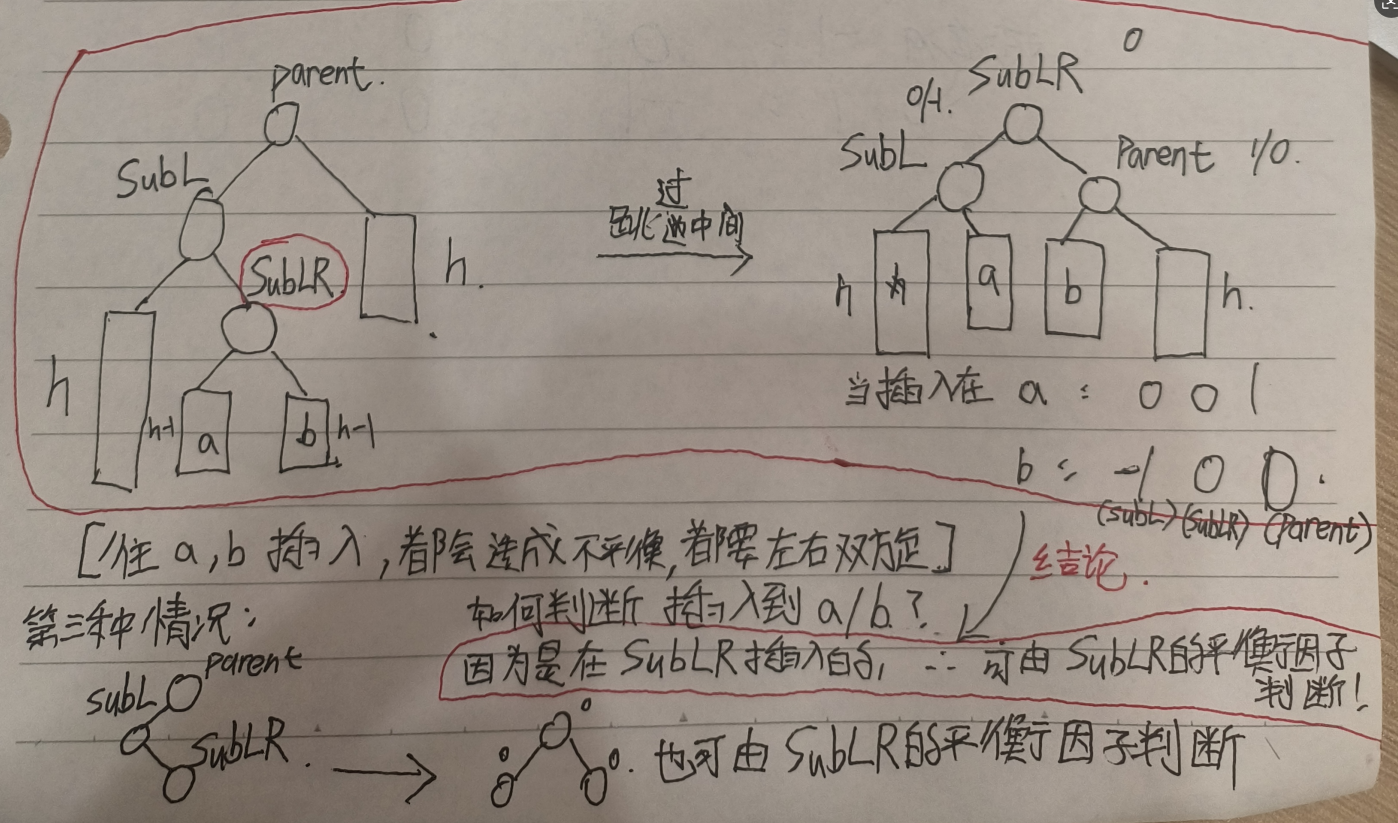 parent.
SubL
SubLR
h.
h
h-1 a
b h-1
过
跳过中间
0
0/-1. SubLR
SubL
Parent 1/0.
h h a b h.
当插入在 a : 0 0 1
b : -1 0 0.
(SubL) (SubLR) (Parent)
[往 a,b 插入,都会造成不平衡,都要左右双旋]
结论.
如何判断 插入到 a/b?
因为是在 SubLR 插入的, ∴ 可由 SubLR的平衡因子
判断!
第三种情况:
parent
subL
SubLR.
0
0 0.
也可由 SubLR的平衡因子判断